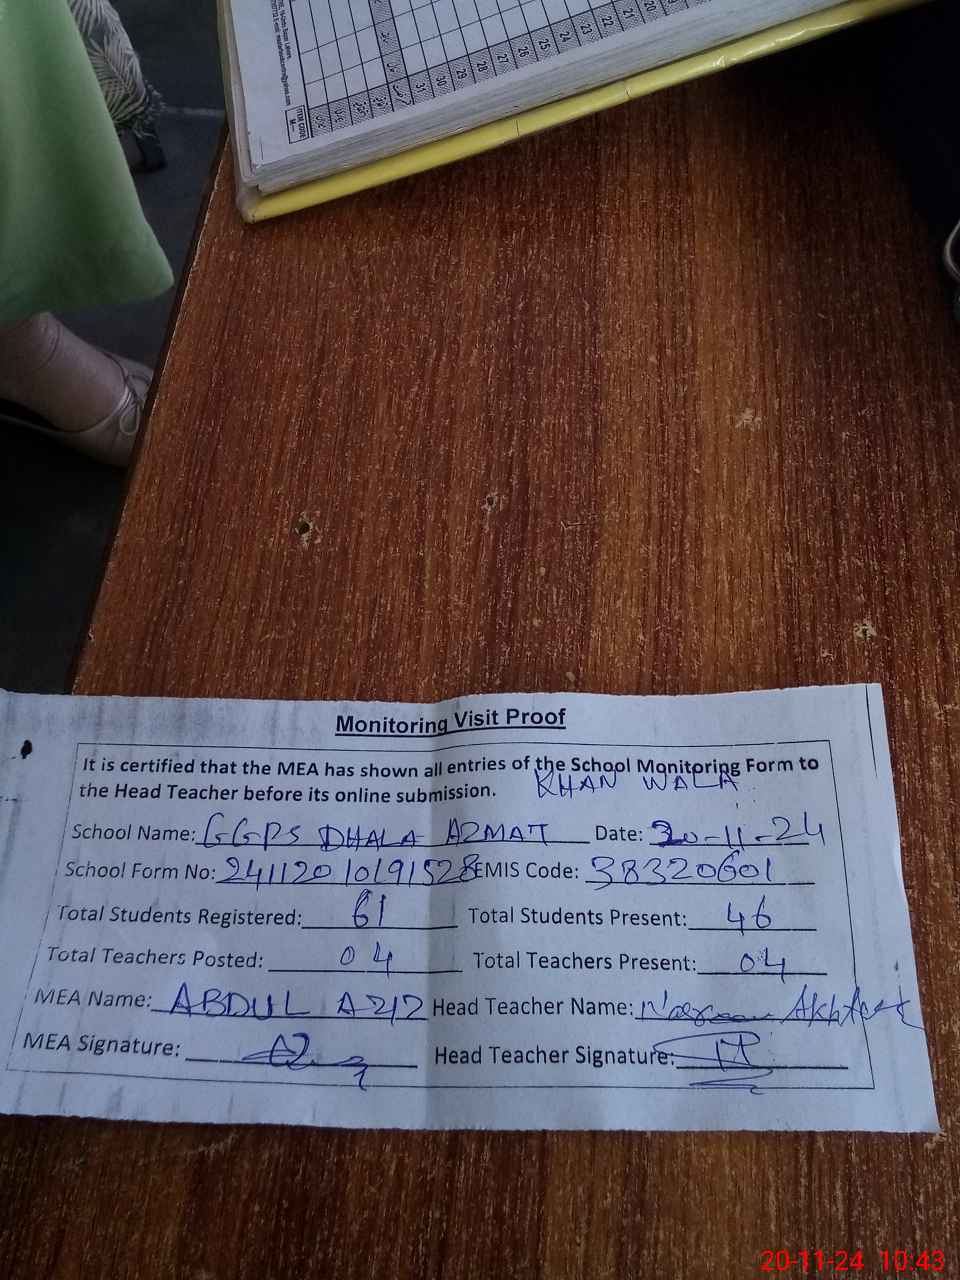 ITEM CODE
31
30
29
28
27
26
25
24
23
22
21
20
Monitoring Visit Proof
It is certified that the MEA has shown all entries of the School Monitoring Form to
the Head Teacher before its online submission. KHAN WALA
School Name: GGPS DHALA AZMAT Date: 20-11-24
School Form No: 24112010191528 EMIS Code: 38320601
Total Students Registered: 61 Total Students Present: 46
Total Teachers Posted: 04 Total Teachers Present: 04
MEA Name: ABDUL AZIZ Head Teacher Name: Akhtar
MEA Signature: Head Teacher Signature:
20-11-24 10:43